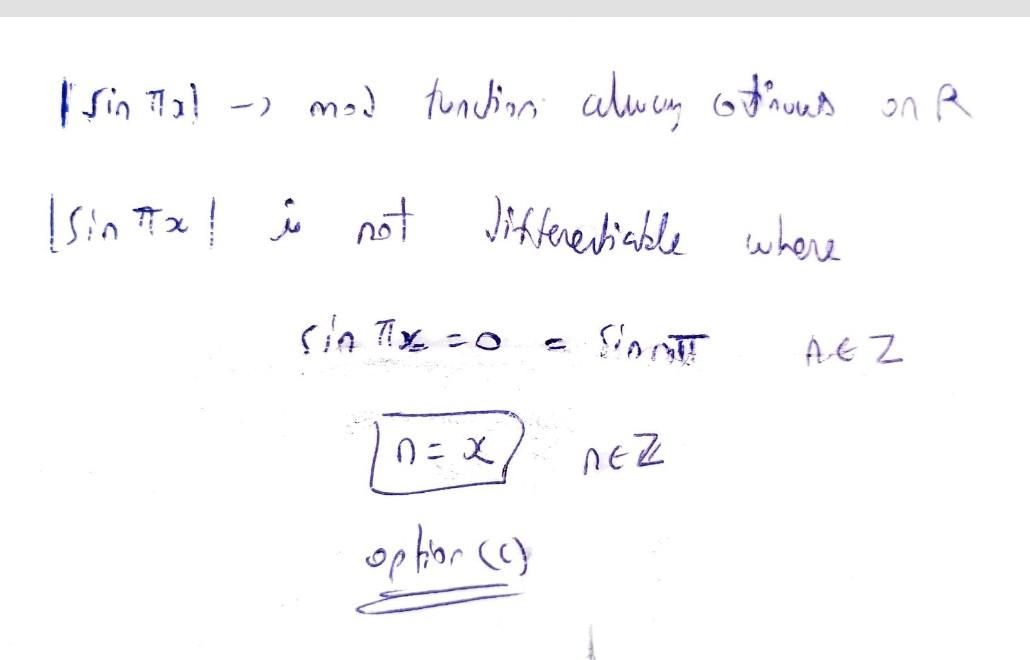 |sin πx| -> mod function always continuous on R
|sin πx| is not differentiable where
sin πx = 0 = sin nπ n ∈ Z
n = x n ∈ Z
option (c)